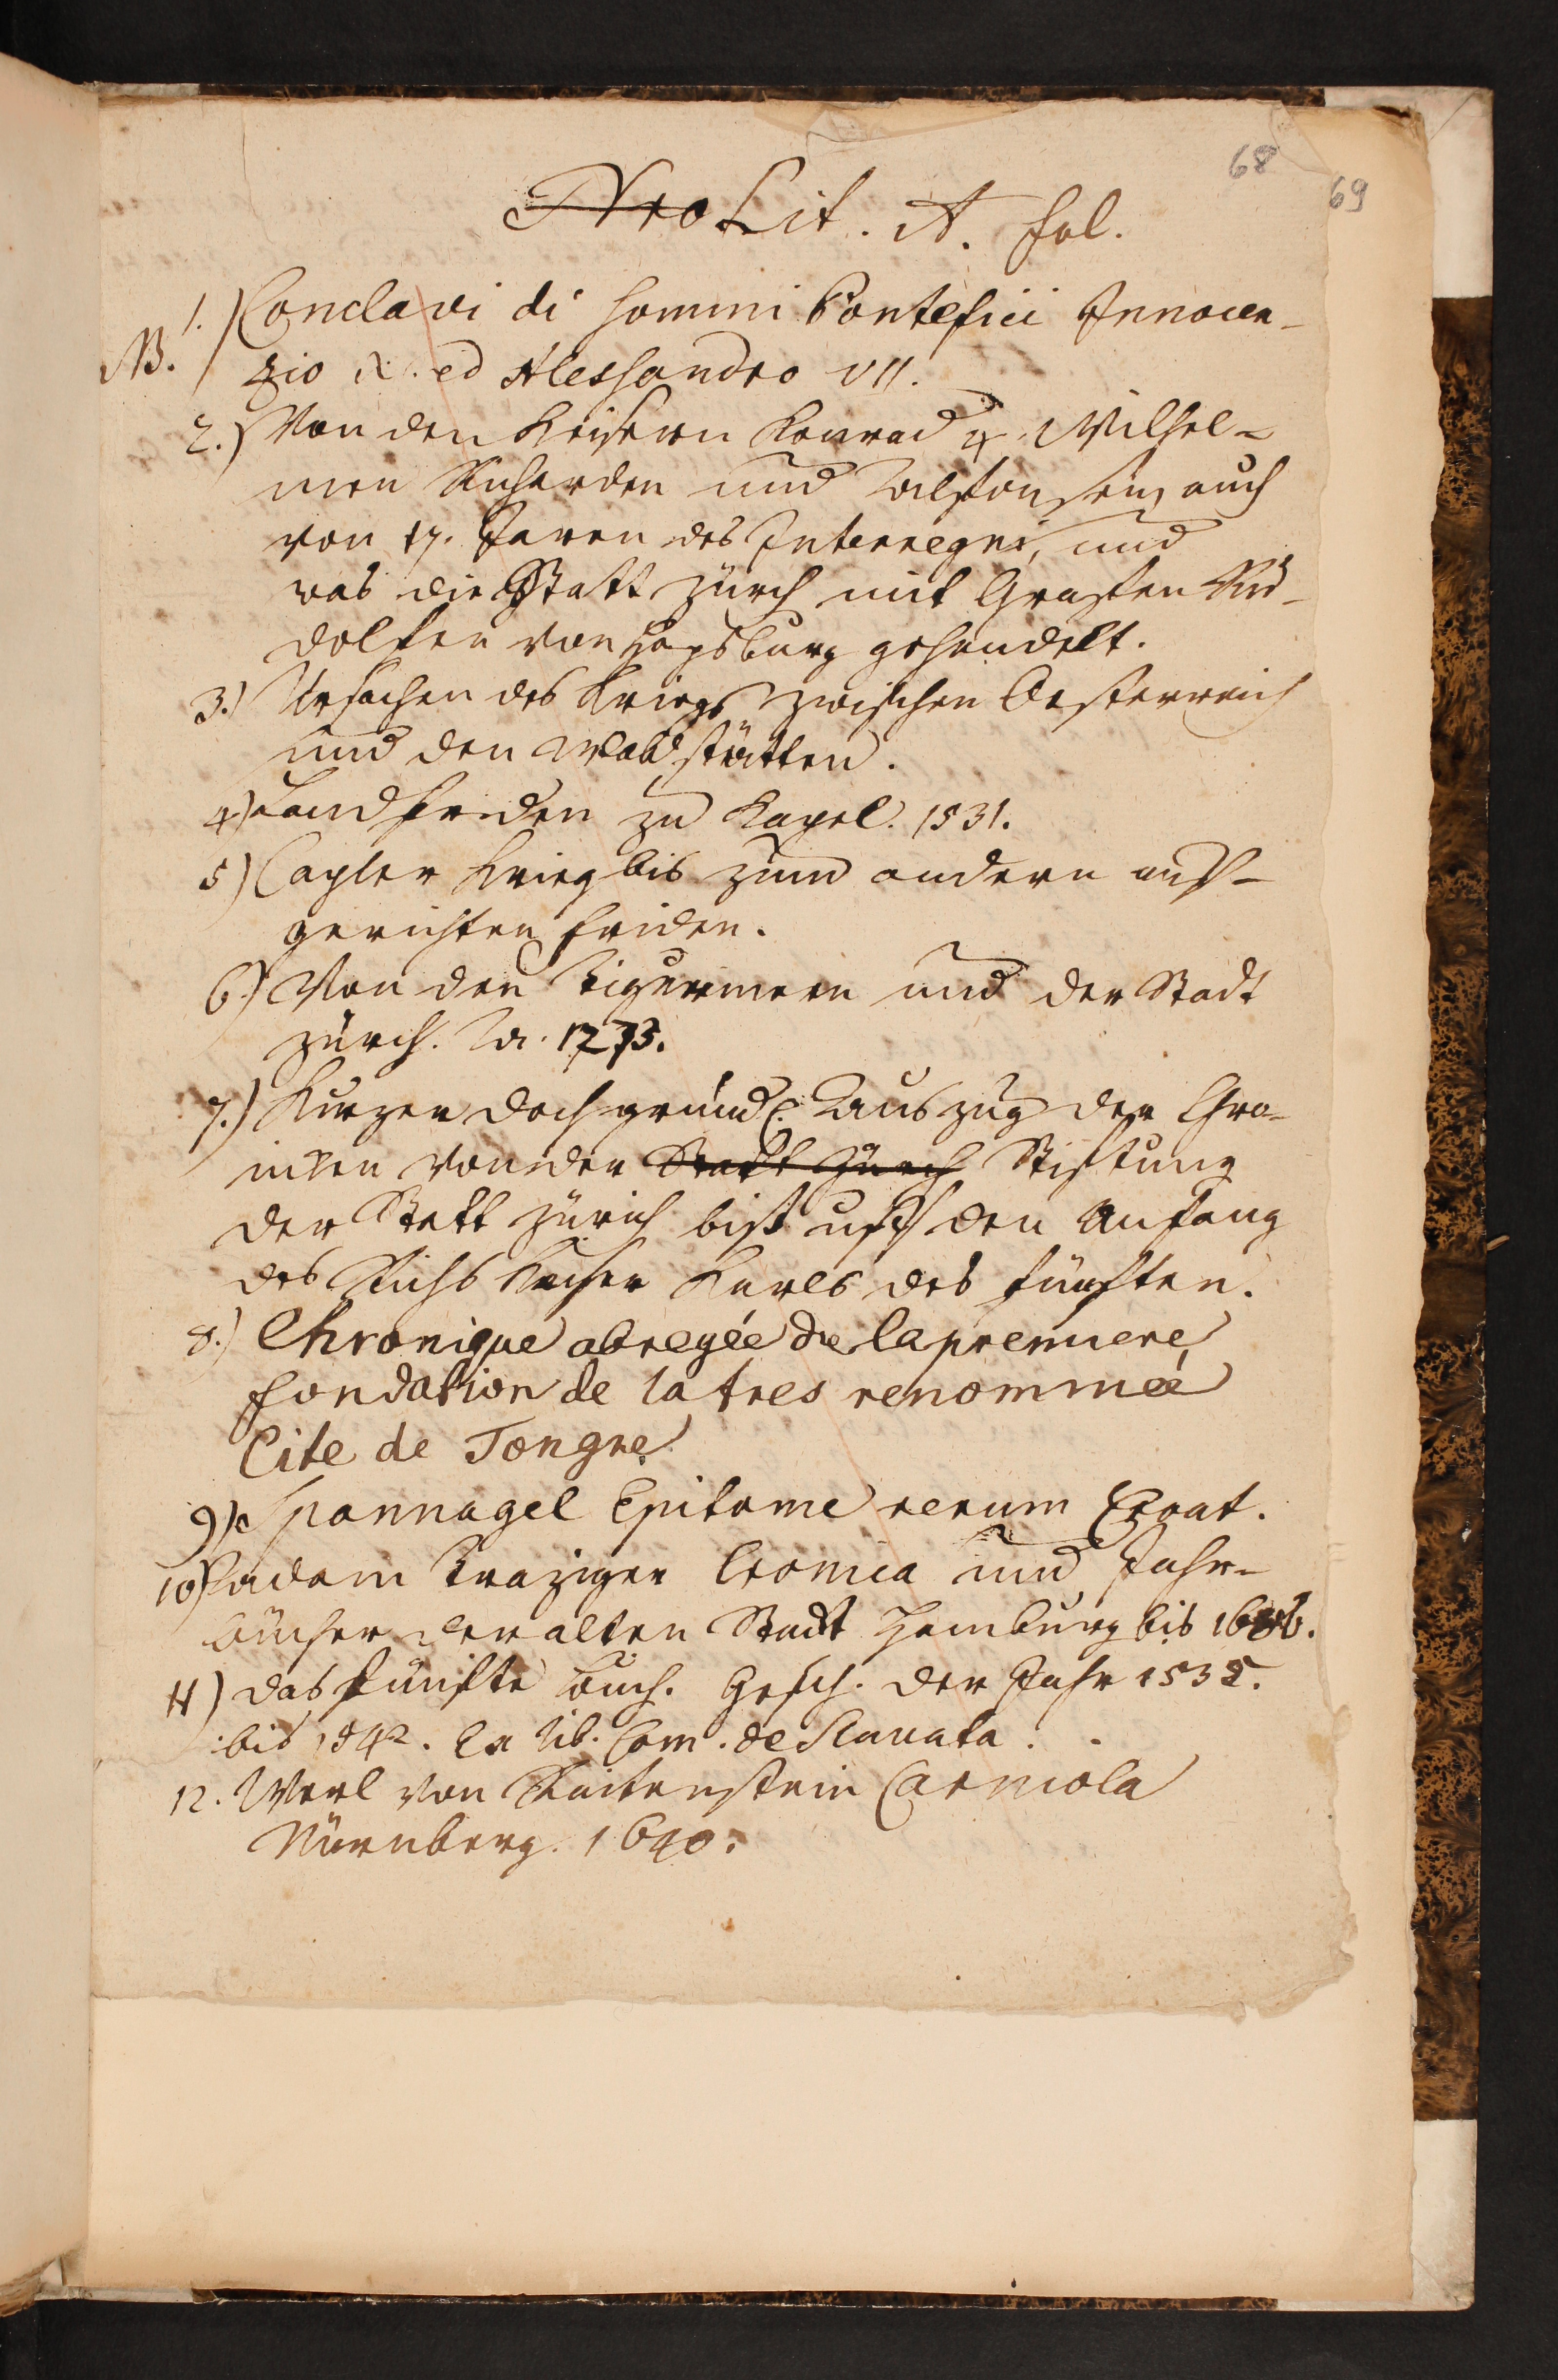 68
69
Nro Lit. A. fol.
1.) Conclavi di sommi Pontefici Innocen-
NB. zio X. ed Alessandro VII.
2.) Von den Keisern Konrad 4. Wilhel-
men Richarden und Alfonsen, auch
von 17. Jaren des Interregni, und
was die Statt Zürch mit Grafen Ru-
dolfen von Hapsburg gehandelt.
3.) Ursachen des Kriegs zwischen Oesterreich
und den Waldstätten.
4) Landfriden zu Kapel. 1531.
5) Capler Krieg bis zum andern auf-
gerichten friden.
6.) Von den Tigurinern und der Stadt
Zürch. A. 1273.
7.) Kurzer doch gründl. Auszug der Chro-
niken von der Statt Zürch Stiftung
der Statt Zürich bist uff den Anfang
des Richs Keiser Karls des fünften.
8.) Chronique abregée de la premiere
fondation de la tres renommée
Cite de Tongre.
9) Spannagel Epitome rerum Croat.
10) Adam Traziger Cronica und Jahr-
bücher der alten Stadt Hamburg bis
11) das fünfte buch. Gesch. der Jahr 1535.
bis 1542. Ex lib. Com. de Slauata.
12. Merl von Raitenstein Carniola
Nürnberg. 1640.